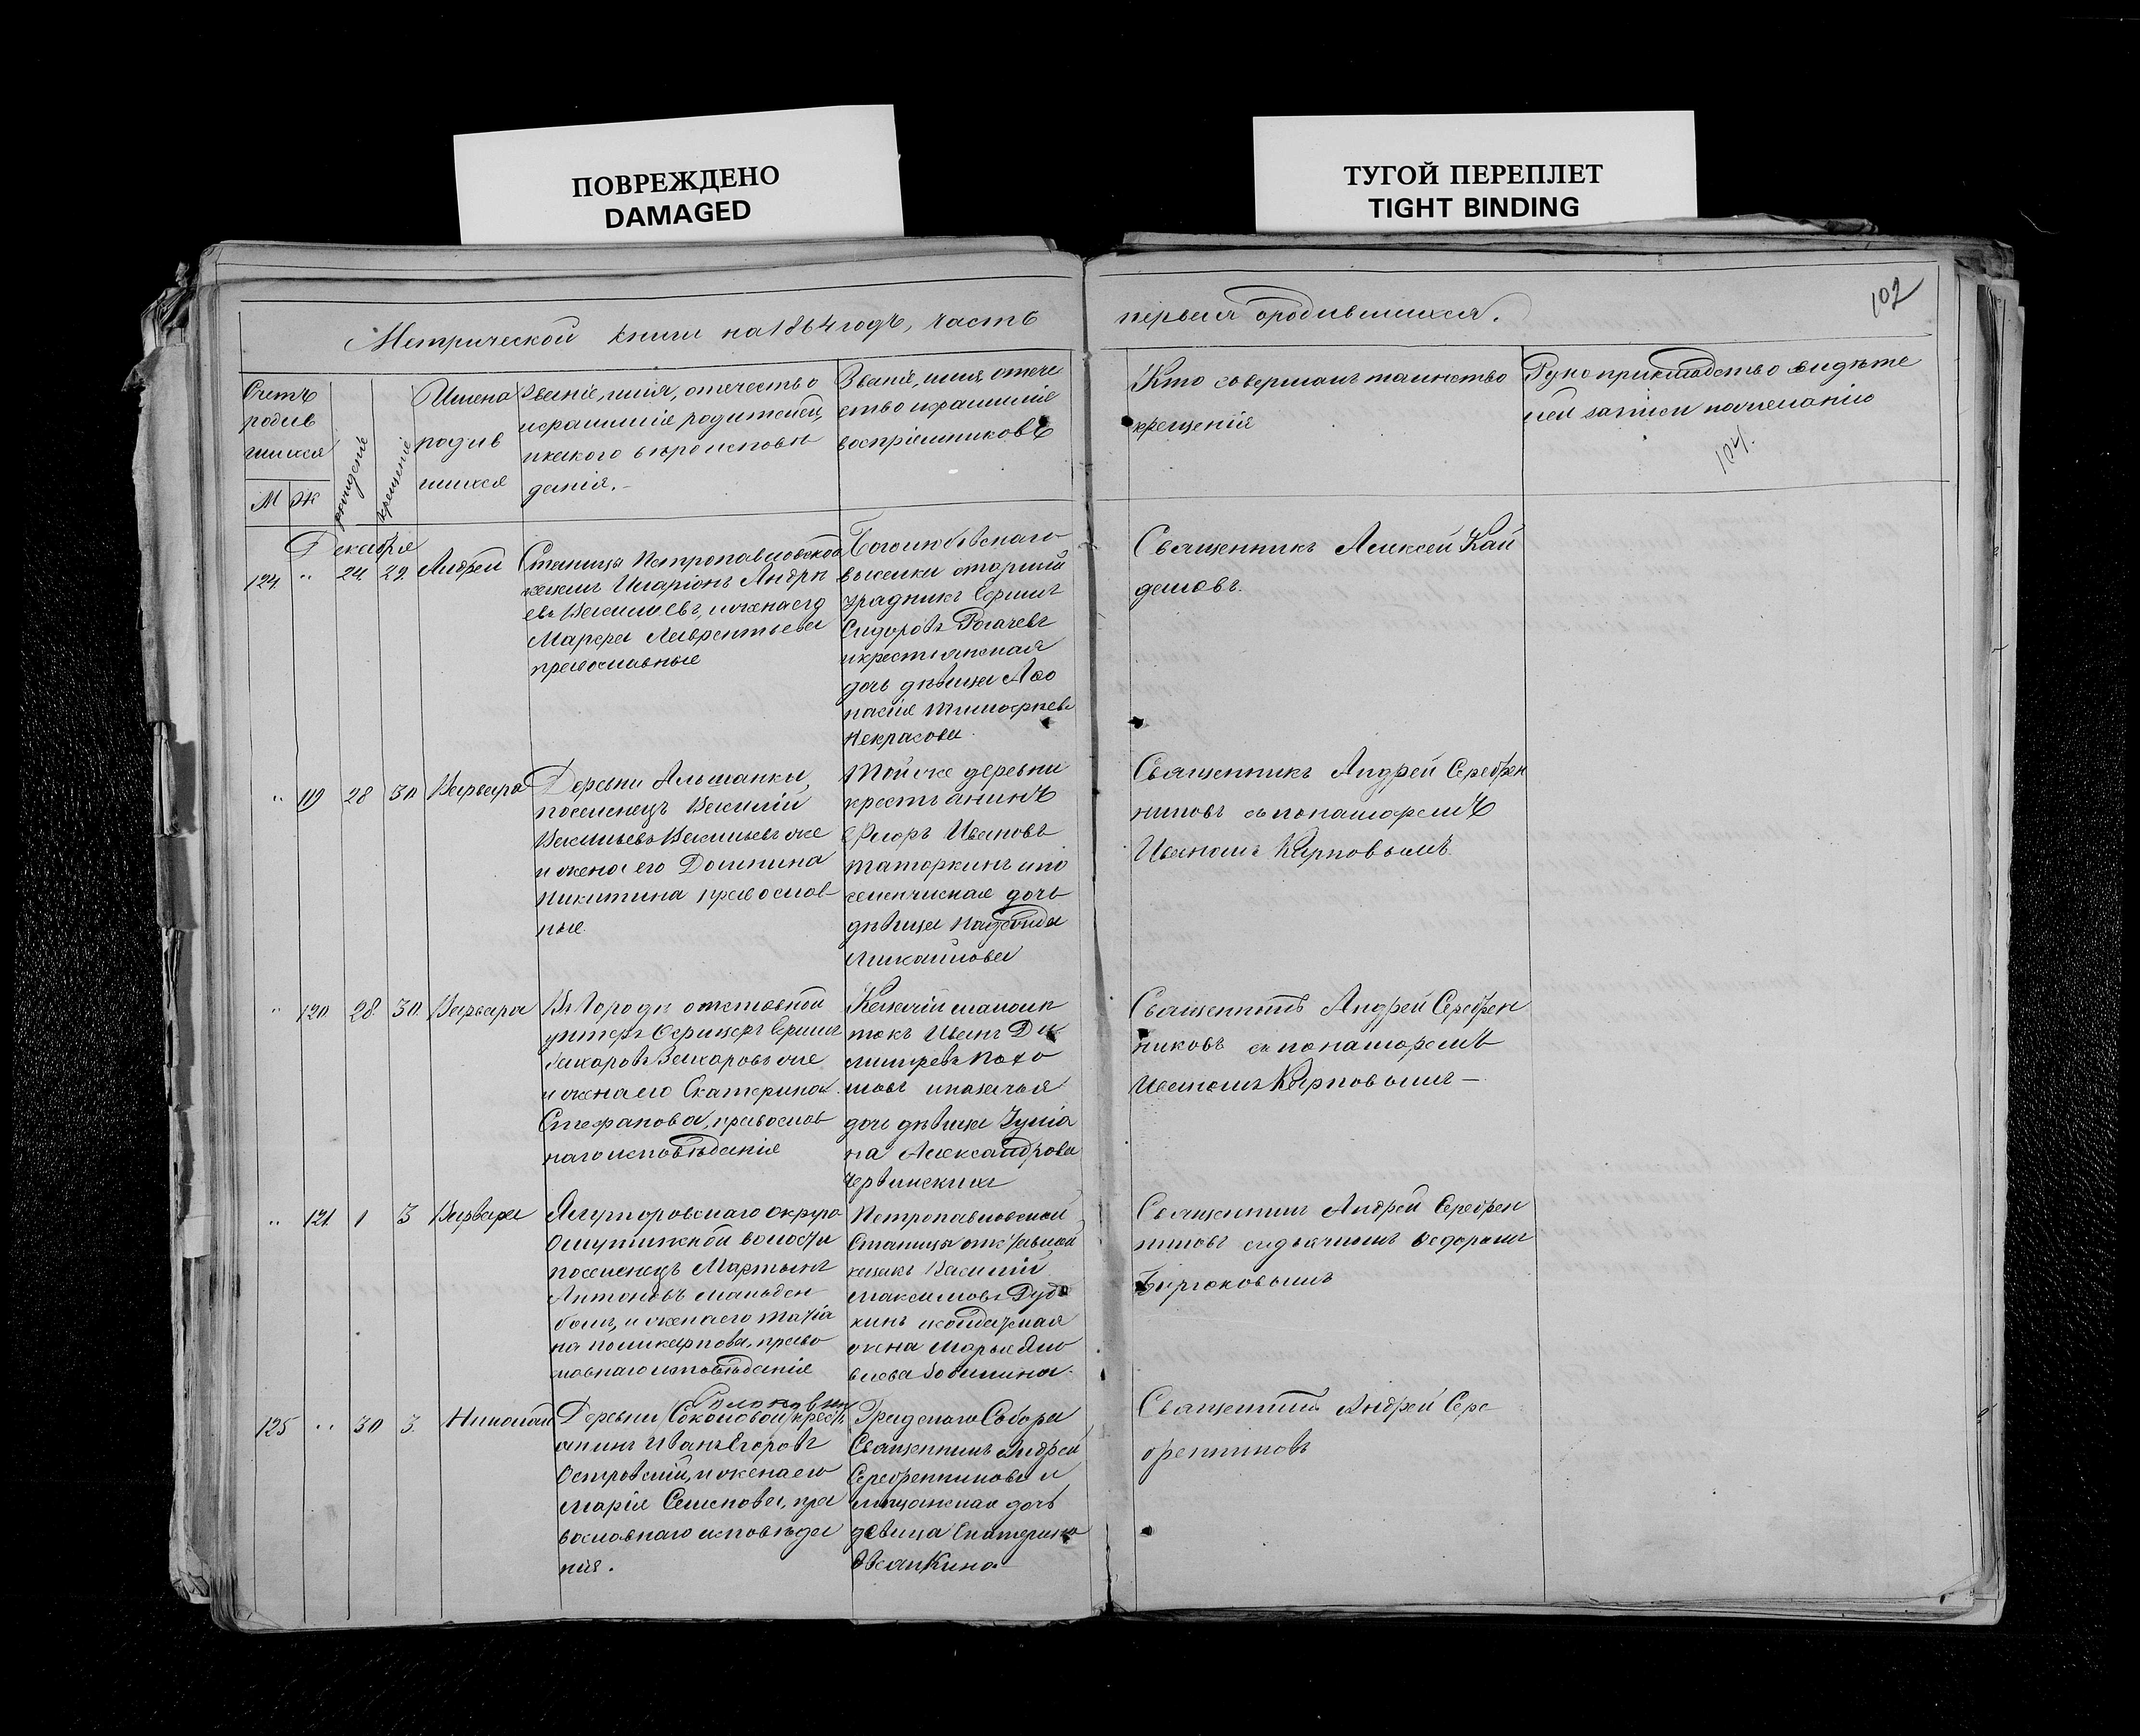 ПОВРЕЖДЕНО
DAMAGED
ТУГОЙ ПЕРЕПЛЕТ
TIGHT BINDING
102
Метрической книги на 1864 годъ, часть
первая ородившихся.
Счетъ
родив
шихся
М Ж
рождение
крещение
Имена
родив
шихся
Званіе, имя, отечество
ифамиліе родителей,
икакого вѣроисповѣ
данія.-
Званіе, имя отече
ство ифамиліе
воспріемниковъ
Кто совершалъ таинство
крещенія
Рукоприкладство свидѣте
лей записи пожеланію
104.
Декабря
124 " 24 29 Андрей
Станицы Петропавловской
казакъ Иларіонъ Андрѣ
евъ Васильевъ, ижена его
Марфа Лаврентьева
православные
Боголюбовскаго
выселка старшій
урядникъ Ефимъ
Сидоровъ Рогачевъ
икрестьянская
дочь дѣвица
Тимофѣева
Некрасова.
Священникъ Алексей Кай
даловъ.
" 119 28 30 Варвара
Деревни Альшанки,
поселенецъ Василій
Васильевъ Васильевъ же
и жена его Домнина
Никитина православ-
ные
Тойже деревни
крестьянинъ
Ѳедоръ Ивановъ
Таторкинъ ипо
селенческая дочь
дѣвица Надежда
Михайлова
Священникъ Андрей Серебрен
никовъ съ понамаремъ
Иваномъ Карповымъ.
" 120 28 30 Варвара
Въ Городѣ отставной
унтеръ Офицеръ Ефимъ
Захаровъ Захаровъ же
и жена его Екатерина
Стефанова, православ
наго исповѣданія
Казачій малолѣ
токъ Иванъ Ди
митревъ
иказачья
дочь дѣвица Іулiа
на Александрова
Священникъ Андрей Серебрен
никовъ съ понамаремъ
Иваномъ Карповымъ —
" 121 1 3 Варвара
Ялуторовскаго округа
Омутинской волости
поселенецъ Мартынъ
Антоновъ
и жена его Татiа
на Поликарпова, право
славнаго исповѣданія
Петропавловской
Станицы отставной
казакъ Василій
Максимовъ Руд
кинъ исолдатская
жена Марья
Священникъ Андрей Серебрен
никовъ съдьячкомъ Ѳедоромъ
Бирюковымъ
125 " 30 3. Николай
Деревни Соколовой крест
янинъ Иванъ Егоровъ
Островскій, и жена его
Марія Семенова, пра
вославнаго исповѣда
нія.
Градскаго Собора
Священникъ Андрей
Серебренниковъ и
мѣщанская дочь
девица Екатерина
Священникъ Андрей Сере
бренниковъ